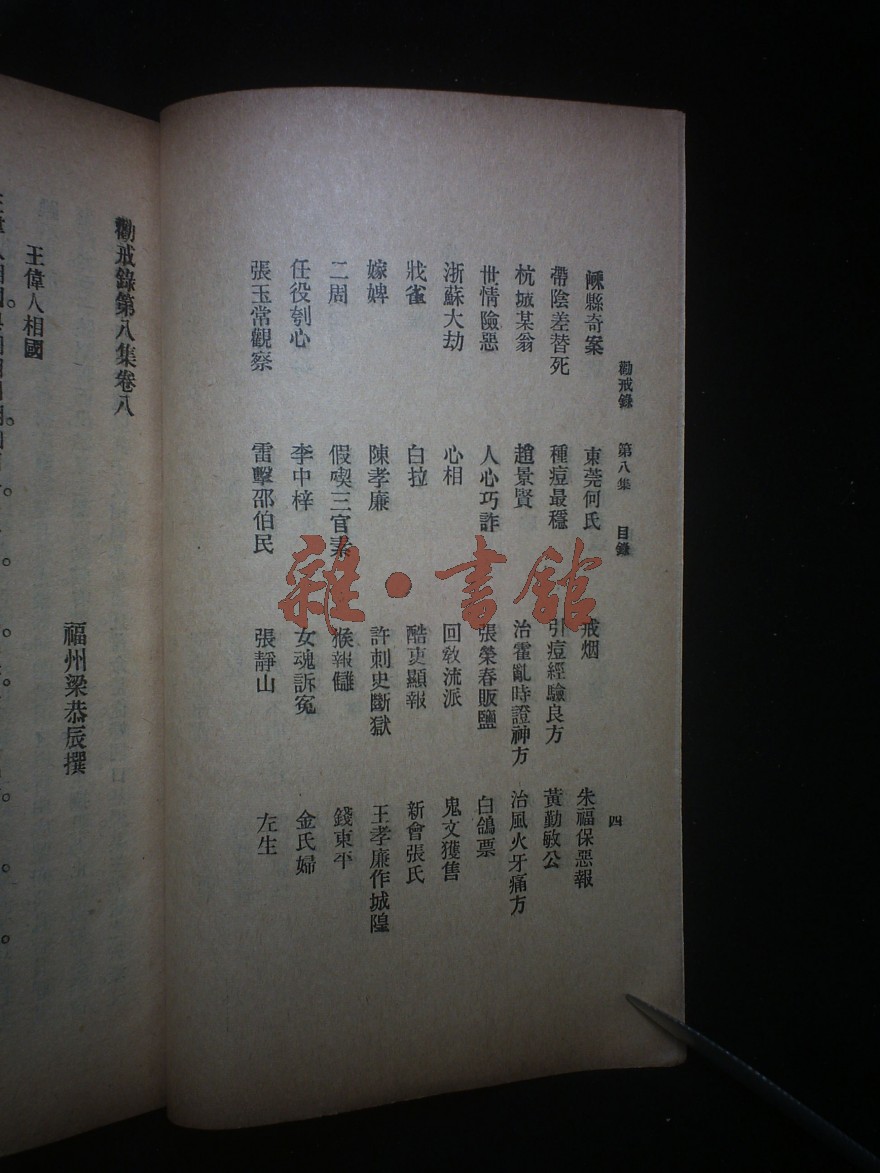 勸戒錄　第八集　目錄　四
嵊縣奇案　東莞何氏　戒烟　朱福保惡報
帶陰差替死　種痘最穩　引痘經驗良方　黃勤敏公
杭城某翁　趙景賢　治霍亂時證神方　治風火牙痛方
世情險惡　人心巧詐　張榮春販鹽　白鴿票
浙蘇大劫　心相　回敎流派　鬼文獲售
戕雀　白拉　酷吏顯報　新會張氏
嫁婢　陳孝廉　許刺史斷獄　王孝廉作城隍
二周　假喫三官素　猴報讎　錢東平
任役刳心　李中梓　女魂訴冤　金氏婦
張玉常觀察　雷擊邵伯民　張靜山　左生
雜·書館
勸戒錄第八集卷八
福州梁恭辰撰
王偉人相國